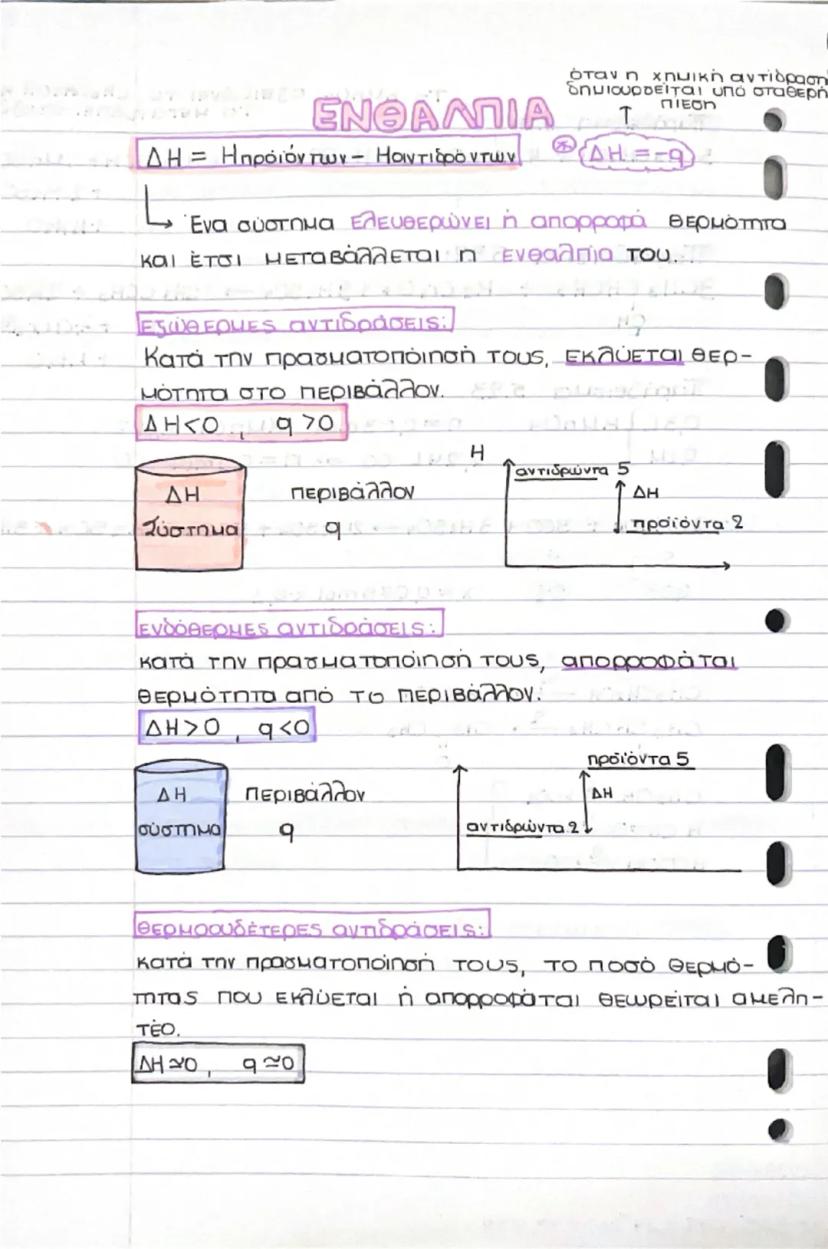 όταν η χημική αντίδραση
δημιουργείται υπό σταθερή
πίεση
↑
ΕΝΘΑΛΠΙΑ
ΔΗ = Ηπροϊόντων - Ηαντιδρόντων * ΔΗ = -q
↳ Ένα σύστημα ελευθερώνει ή απορροφά θερμότητα
και έτσι μεταβάλλεται η ενθαλπία του.
Εξώθερμες αντιδράσεις:
Κατά την πραγματοποίησή τους, εκλύεται θερ-
μότητα στο περιβάλλον.
ΔΗ<0, q>0
Η
αντιδρώντα 5
ΔΗ περιβάλλον ΔΗ
Σύστημα q προϊόντα 2
Ενδόθερμες αντιδράσεις:
κατά την πραγματοποίησή τους, απορροφάται
θερμότητα από το περιβάλλον.
ΔΗ>0, q<0
προϊόντα 5
ΔΗ περιβάλλον ΔΗ
σύστημα q αντιδρώντα 2
θερμοουδέτερες αντιδράσεις:
κατά την πραγματοποίησή τους, το ποσό θερμό-
τητας που εκλύεται ή απορροφάται θεωρείται αμελη-
τέο.
ΔΗ≃0, q≃0